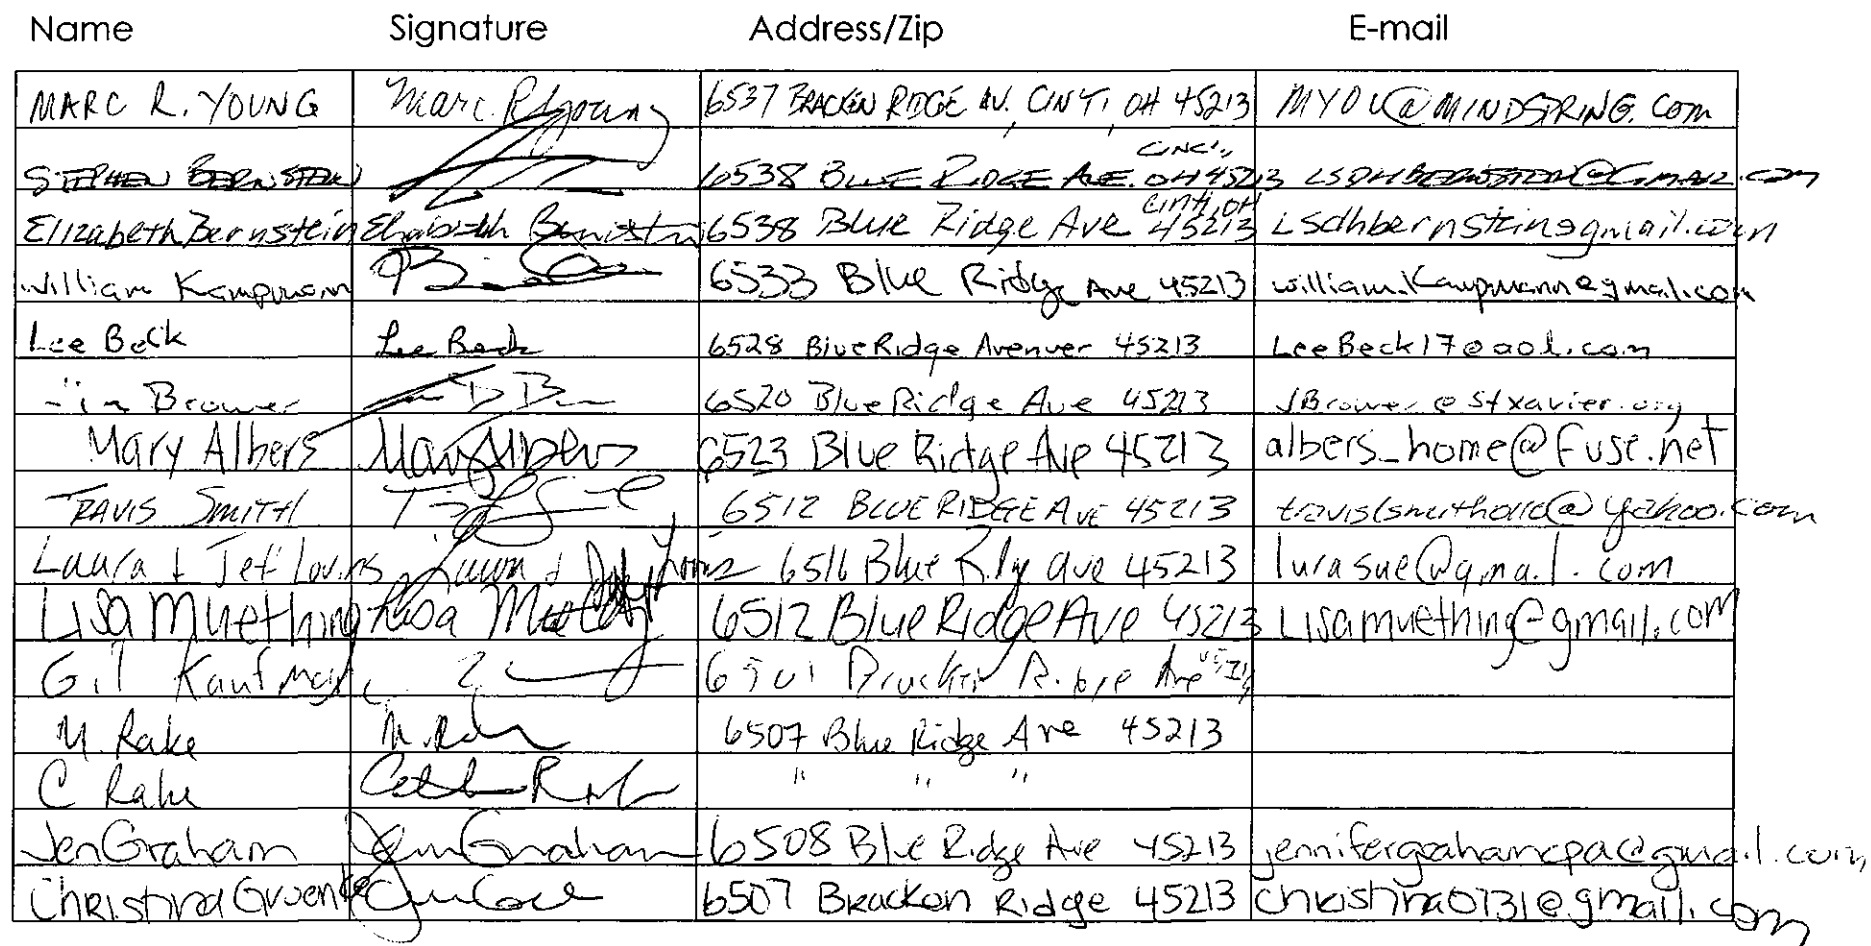 Name Signature Address/Zip E-mail
MARC R. YOUNG Marc. R Young 6537 BRACKEN RIDGE AV. CINTI, OH 45213 MYOU@MINDSPRING.COM
CINCI,
STEPHEN BERNSTEIN 6538 BLUE RIDGE AVE. OH 45213 LSDHBERNSTEIN@GMAIL.COM
CINTI, OH
Elizabeth Bernstein Elizabeth Bernstein 6538 Blue Ridge Ave 45213 Lsdhbernstein@gmail.com
William Kampmann 6533 Blue Ridge Ave 45213 william.kampmann@gmail.com
Lee Beck Lee Beck 6528 Blue Ridge Avenuer 45213 LeeBeck17@aol.com
Jim Brower 6520 Blue Ridge Ave 45213 JBrower@stxavier.org
Mary Albers Mary Albers 6523 Blue Ridge Ave 45213 albers_home@fuse.net
TRAVIS SMITH 6512 BLUE RIDGE AVE 45213
Laura + Jeff Lovins Laura + 6516 Blue Rdg ave 45213 lurasue@gmail.com
Lisa Muething Lisa 6512 Blue Ridge Ave 45213 Lisamuething@gmail.com
Gil Kaufman 6501 Bracken Ridge Ave 45213
M. Rake M. 6507 Blue Ridge Ave 45213
C Rake " " "
Jen Graham Jen Graham 6508 Blue Ridge Ave 45213 jennifergrahamcpa@gmail.com
Christina 6507 Bracken Ridge 45213 christina0731@gmail.com